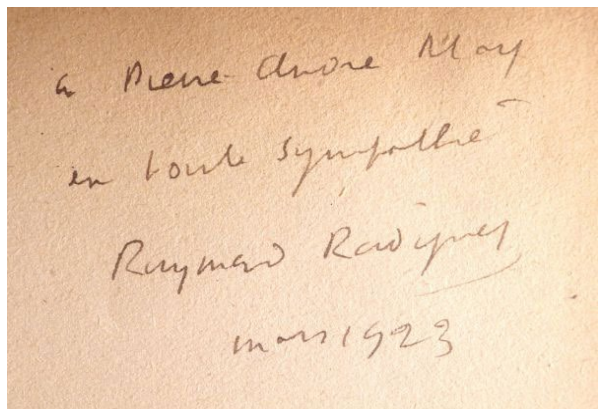 à Pierre-André May
en toute sympathie
Raymond Radiguet
mars 1923